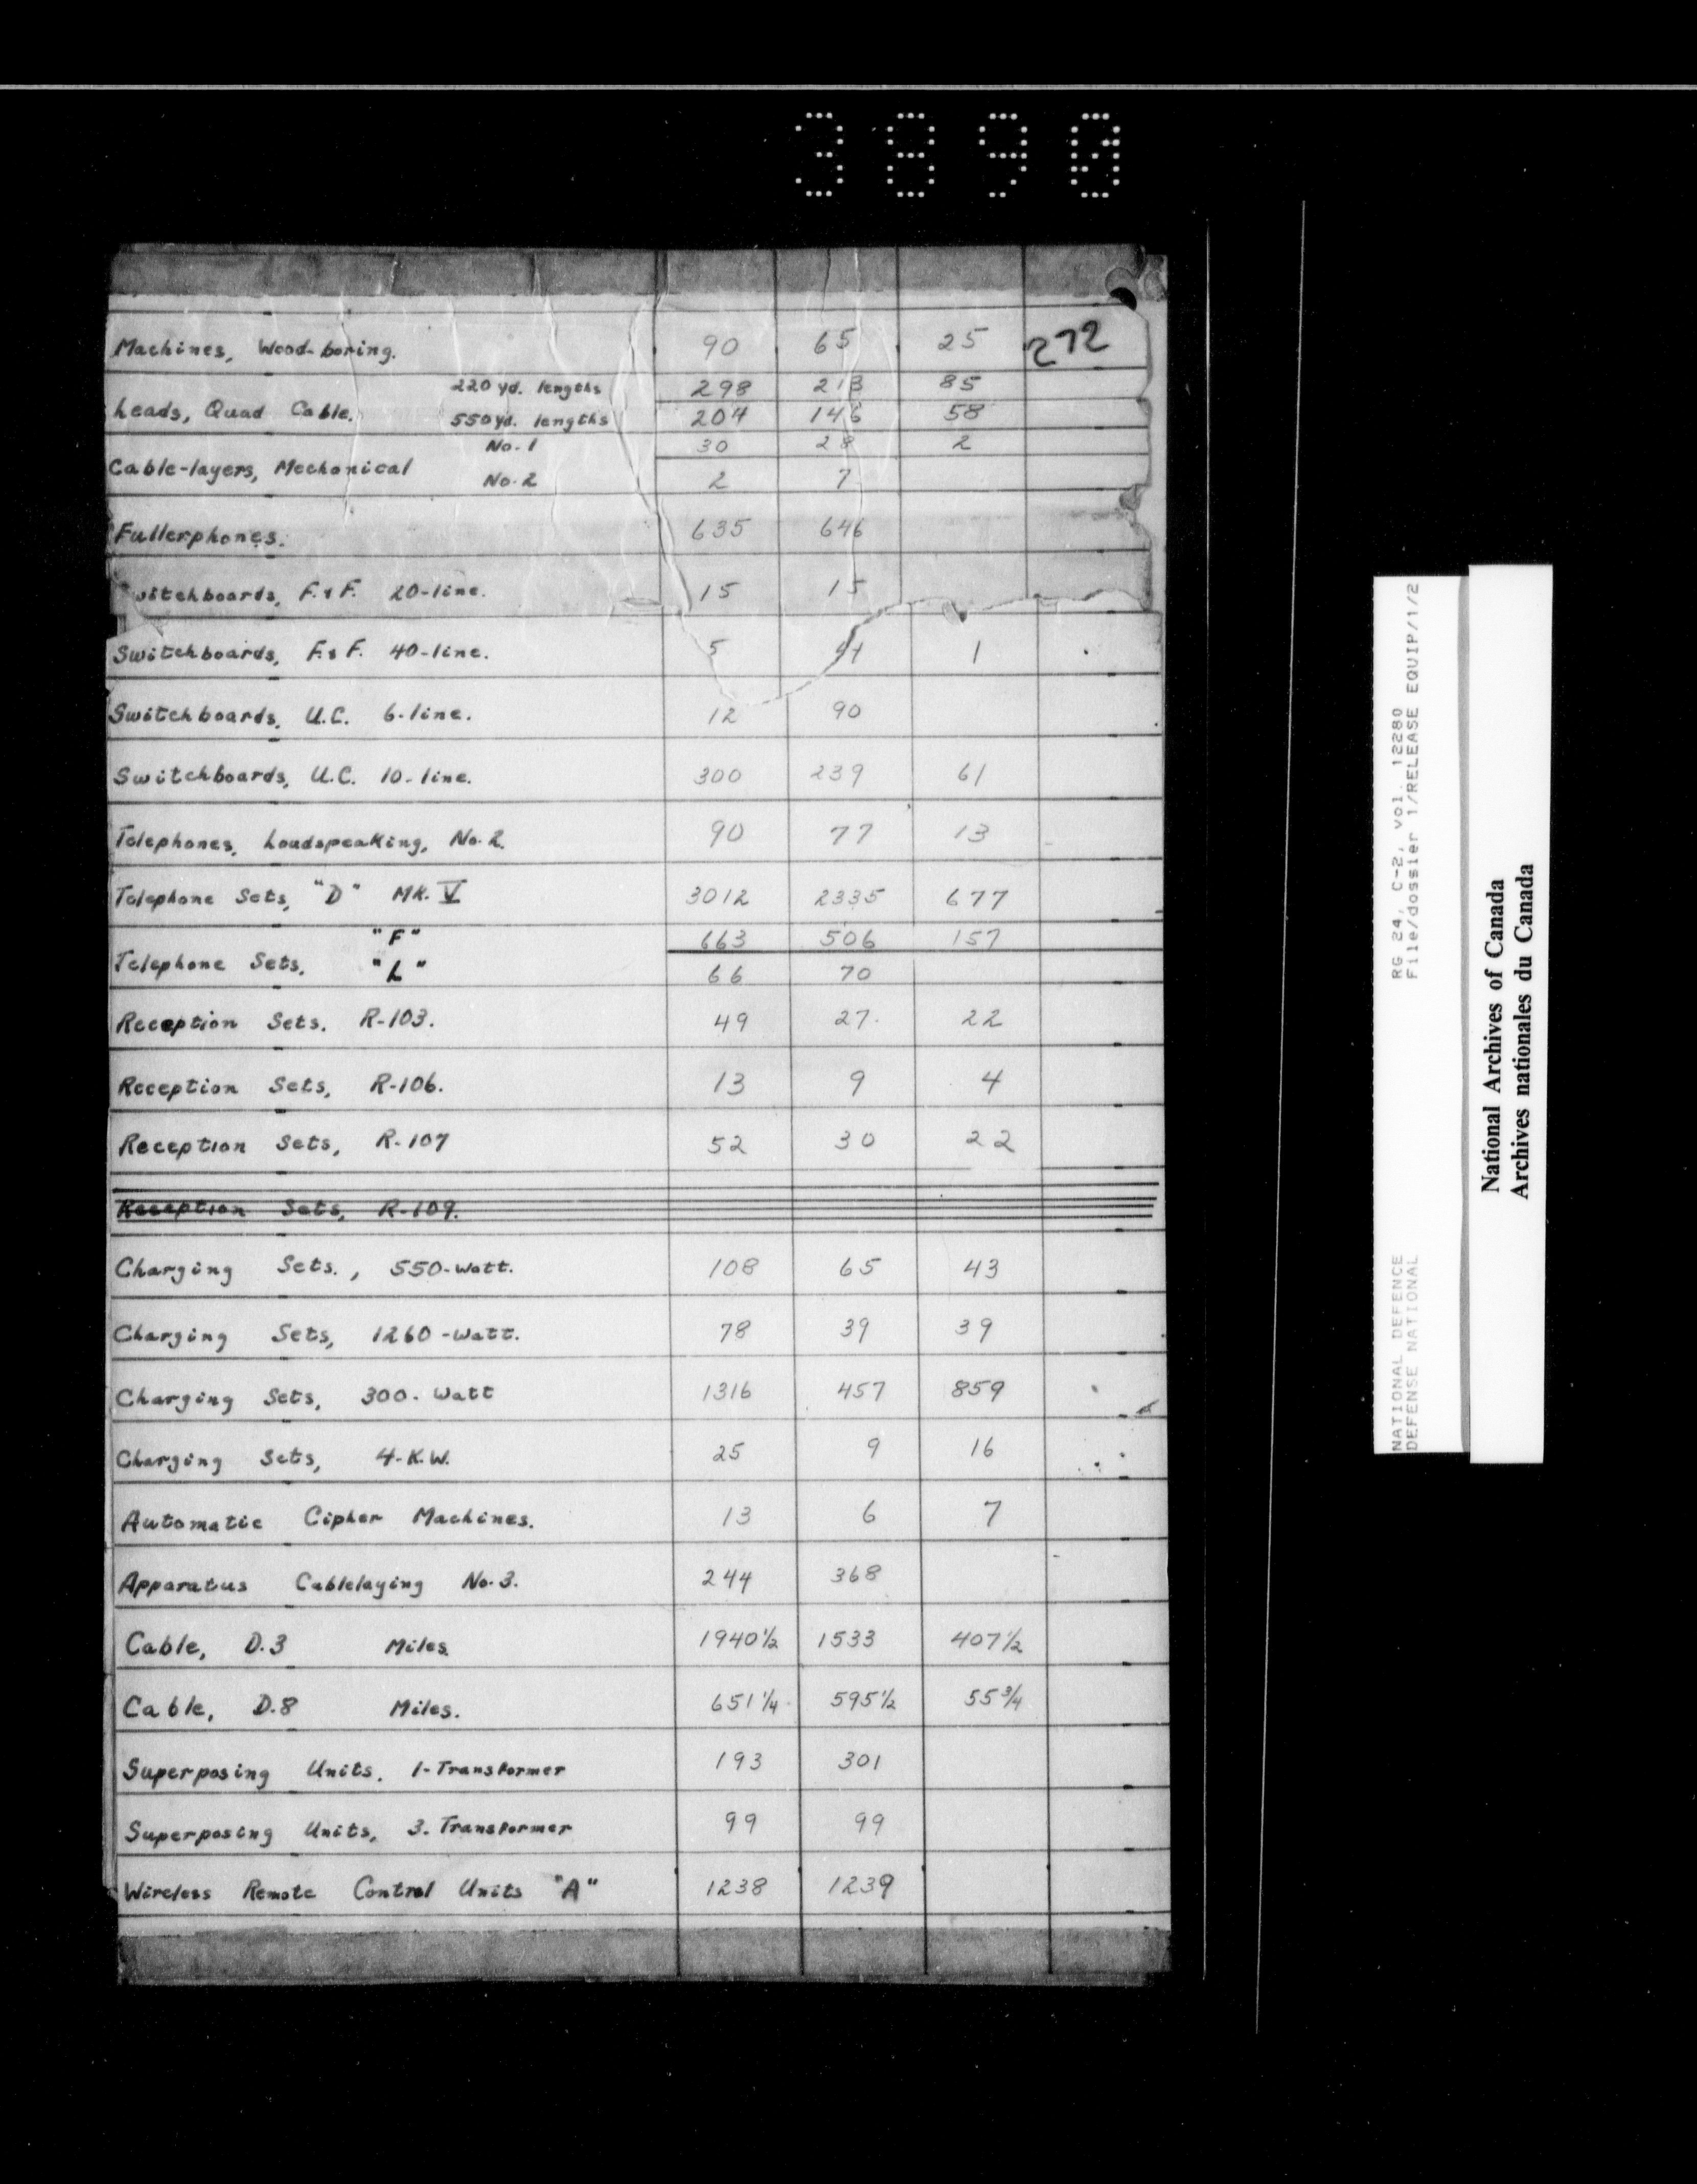 3890
272
Machines, Wood-boring. 90 65 25
220 yd. lengths 298 213 85
Leads, Quad Cable.
550 yd. lengths 204 146 58
No. 1 30 28 2
Cable-layers, Mechanical
No. 2 2 7
Fullerphones. 635 646
Switchboards, F. & F. 20-line. 15 15
Switchboards, F. & F. 40-line. 5 4 1
Switchboards, U.C. 6-line. 12 90
Switchboards, U.C. 10-line. 300 239 61
Telephones, Loudspeaking, No. 2. 90 77 13
Telephone Sets, "D" MK. V 3012 2335 677
"F" 663 506 157
Telephone Sets.
"L" 66 70
Reception Sets. R-103. 49 27. 22
Reception Sets, R-106. 13 9 4
Reception Sets, R-107 52 30 22
Reception Sets, R-109.
Charging Sets., 550-watt. 108 65 43
Charging Sets, 1260-watt. 78 39 39
Charging Sets, 300-Watt 1316 457 859
Charging Sets, 4-K.W. 25 9 16
Automatic Cipher Machines. 13 6 7
Apparatus Cablelaying No. 3. 244 368
Cable, D.3 Miles. 1940 1/2 1533 407 1/2
Cable, D.8 Miles. 651 1/4 595 1/2 55 3/4
Superposing Units, 1-Transformer 193 301
Superposing Units, 3-Transformer 99 99
Wireless Remote Control Units "A" 1238 1239
NATIONAL DEFENCE RG 24, C-2, vol. 12280
DEFENSE NATIONAL File/dossier 1/RELEASE EQUIP/1/2
National Archives of Canada
Archives nationales du Canada